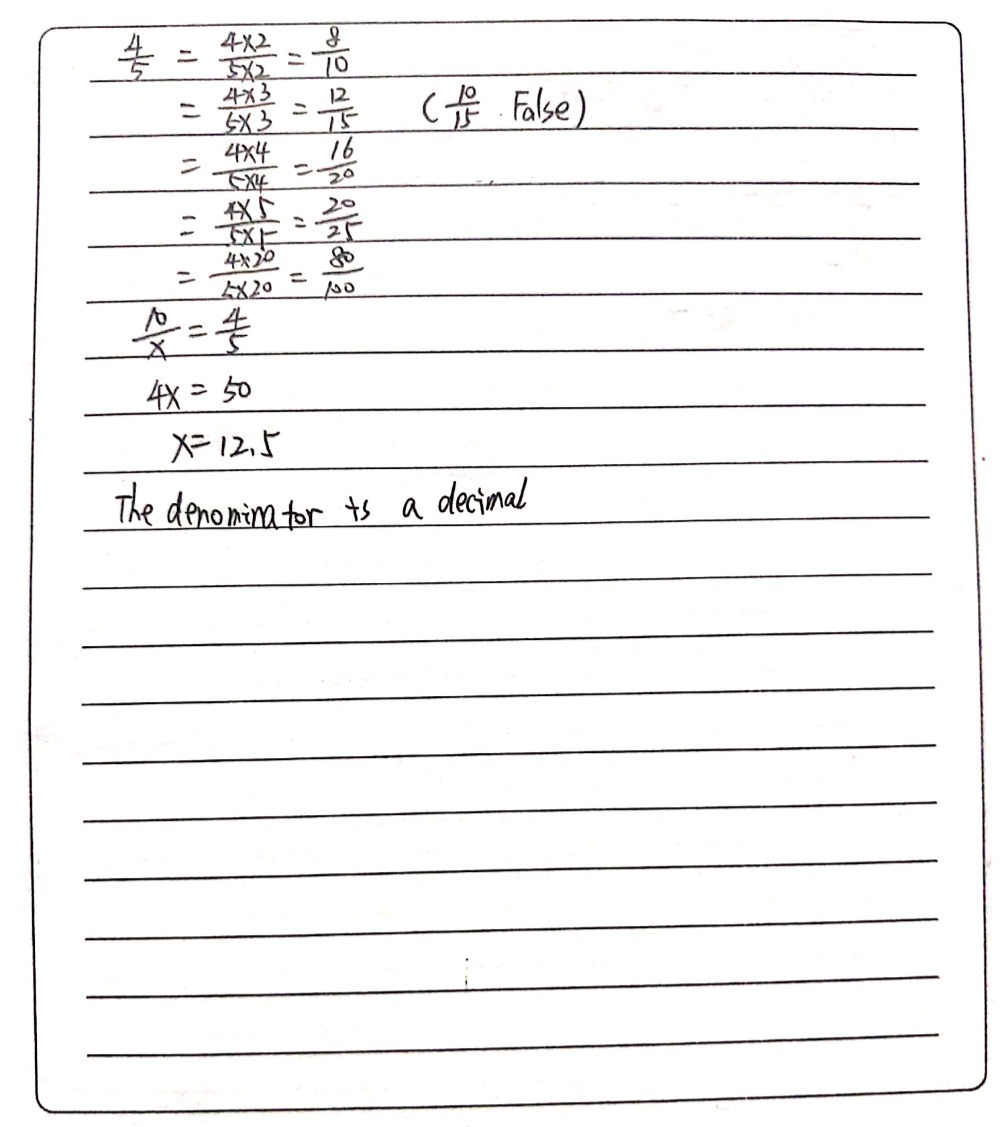 4/5 = 4×2/5×2 = 8/10
= 4×3/5×3 = 12/15 (10/15 . False)
= 4×4/5×4 = 16/20
= 4×5/5×5 = 20/25
= 4×20/5×20 = 80/100
10/x = 4/5
4x = 50
x = 12.5
The denominator is a decimal